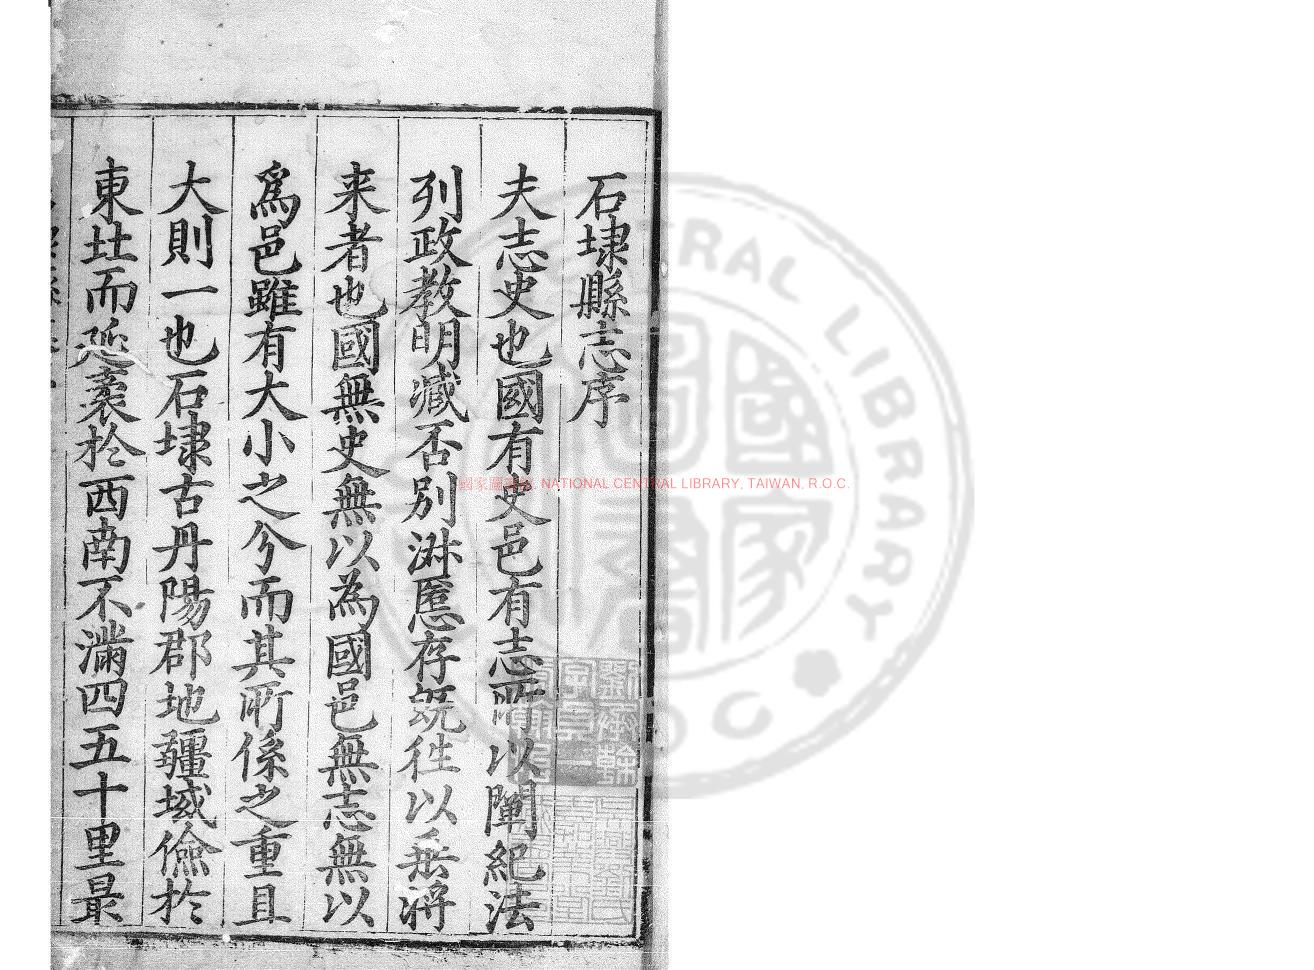 石埭縣志序
夫志史也國有史邑有志所以闡紀法
列政教明臧否別淋慝存既徃以垂將
来者也國無史無以為國邑無志無以
爲邑雖有大小之分而其所係之重且
大則一也石埭古丹陽郡地疆域儉於
東北而延袤於西南不滿四五十里最
國家圖書館, NATIONAL CENTRAL LIBRARY, TAIWAN, R.O.C.